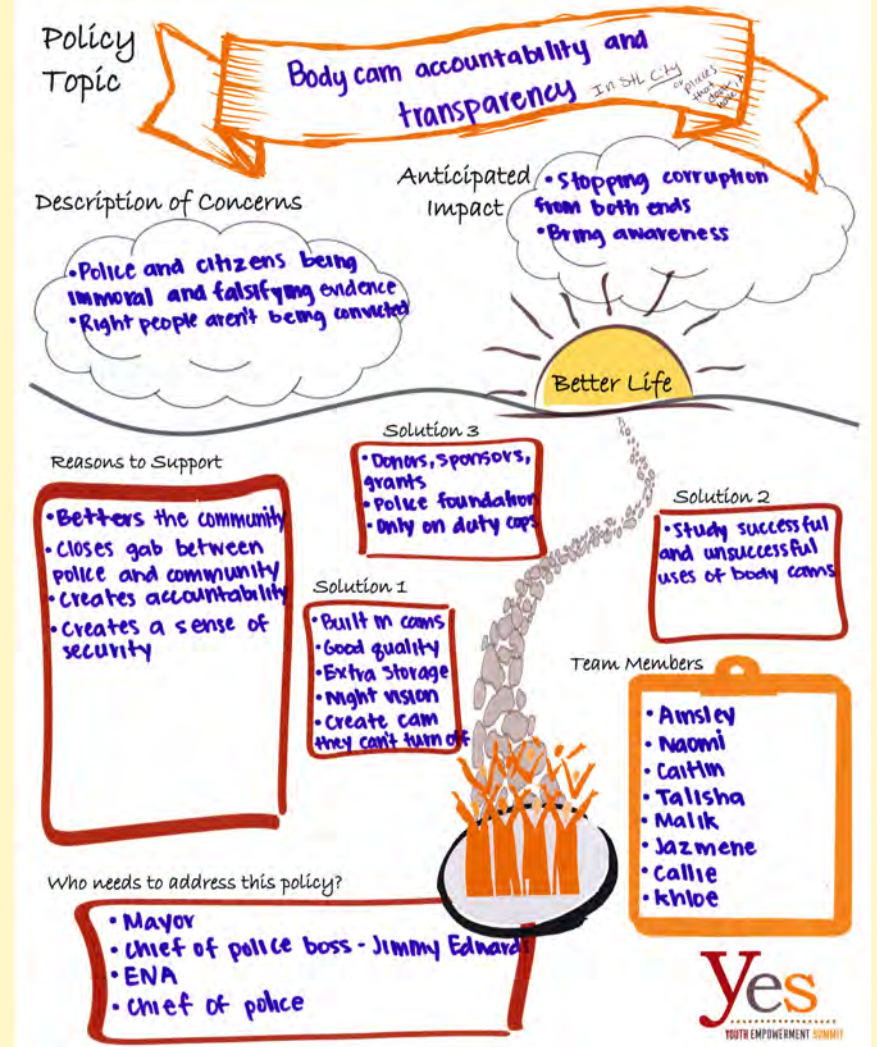 Policy
Topic
Body cam accountability and
transparency In StL City
or places
that
don't
have it
Description of Concerns
• Police and citizens being
immoral and falsifying evidence
• Right people aren't being convicted
Anticipated
Impact
• Stopping corruption
from both ends
• Bring awareness
Better Life
Reasons to Support
• Betters the community
• Closes gab between
police and community
• Creates accountability
• Creates a sense of
security
Solution 3
• Donors, sponsors,
grants
• Police foundation
• Only on duty cops
Solution 2
• Study successful
and unsuccessful
uses of body cams
Solution 1
• Built in cams
• Good quality
• Extra storage
• Night vision
• Create cam
they can't turn off
Team Members
• Ainsley
• Naomi
• Caitlin
• Talisha
• Malik
• Jazmene
• Callie
• Khloe
Who needs to address this policy?
• Mayor
• Chief of police boss - Jimmy Edwards
• ENA
• Chief of police
Yes
YOUTH EMPOWERMENT SUMMIT